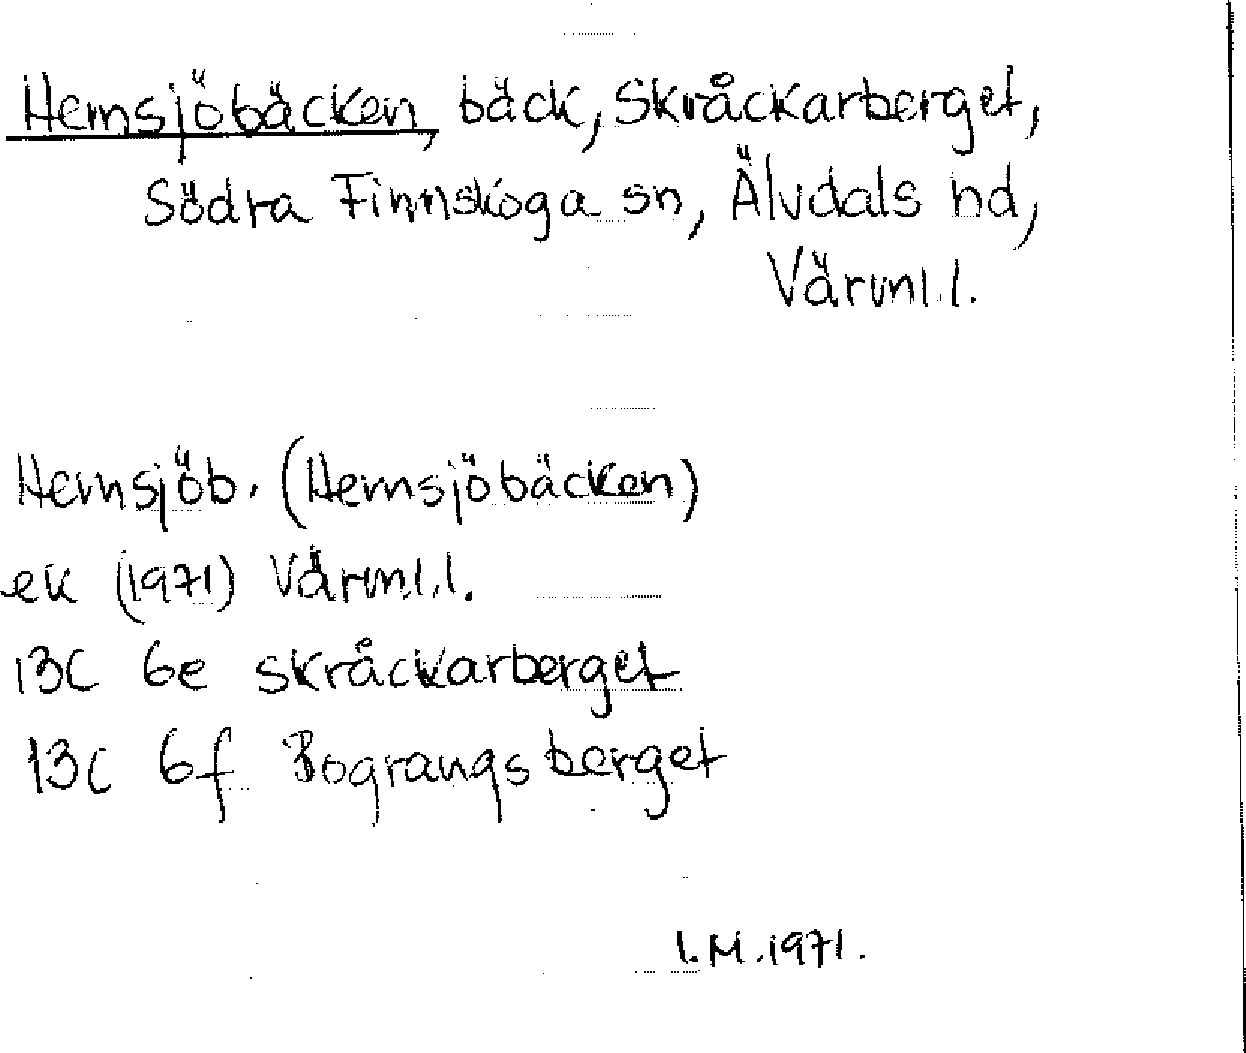 Hemsjöbäcken, bäck, Skråckarberget,
Södra Finnskoga sn, Älvdals hd,
Värml.l.
Hemsjöb. (Hemsjöbäcken)
ek (1971) Värml.l.
13C 6e Skråckarberget
13C 6f Bograngsberget
I.M. 1971.